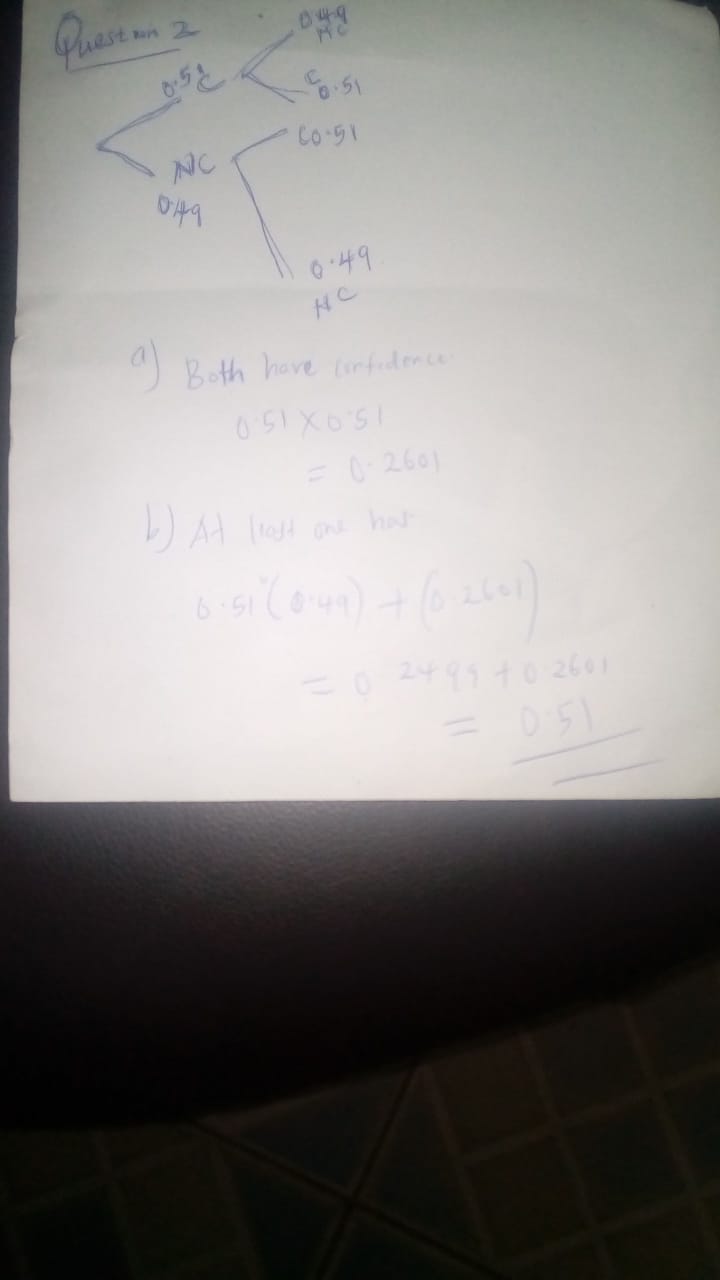 Question 2
0.49
NC
0.51 C
C
0.51
C 0.51
NC
0.49
0.49
NC
a) Both have confidence
0.51 X 0.51
= 0.2601
b) At least one has
0.51 (0.49) + (0.2601)
= 0.2499 + 0.2601
= 0.51